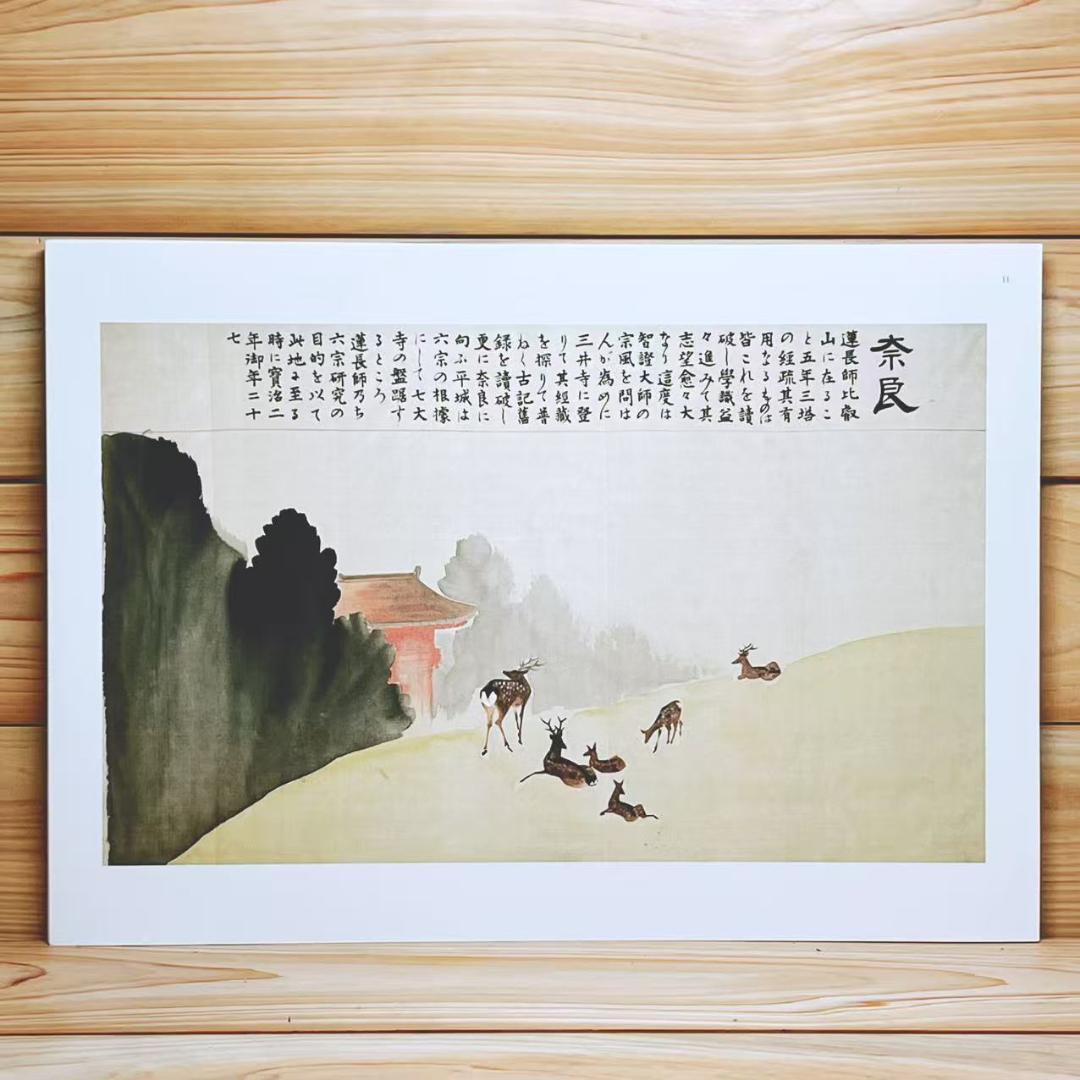 奈良
蓮長師比叡
山に在るこ
と五年三塔
の経疏其有
用なるものは
皆これを讀
破し學識益
々進みて其
志望愈々大
なり這度は
智證大師の
宗風を問は
んが為めに
三井寺に登
りて其經藏
を探りて普
ねく古記舊
録を讀破し
更に奈良に
向ふ平城は
六宗の根據
にして七大
寺の盤踞す
るところ
蓮長師乃ち
六宗研究の
目的を以て
此地に至る
時に寳治二
年御年二十
七
11